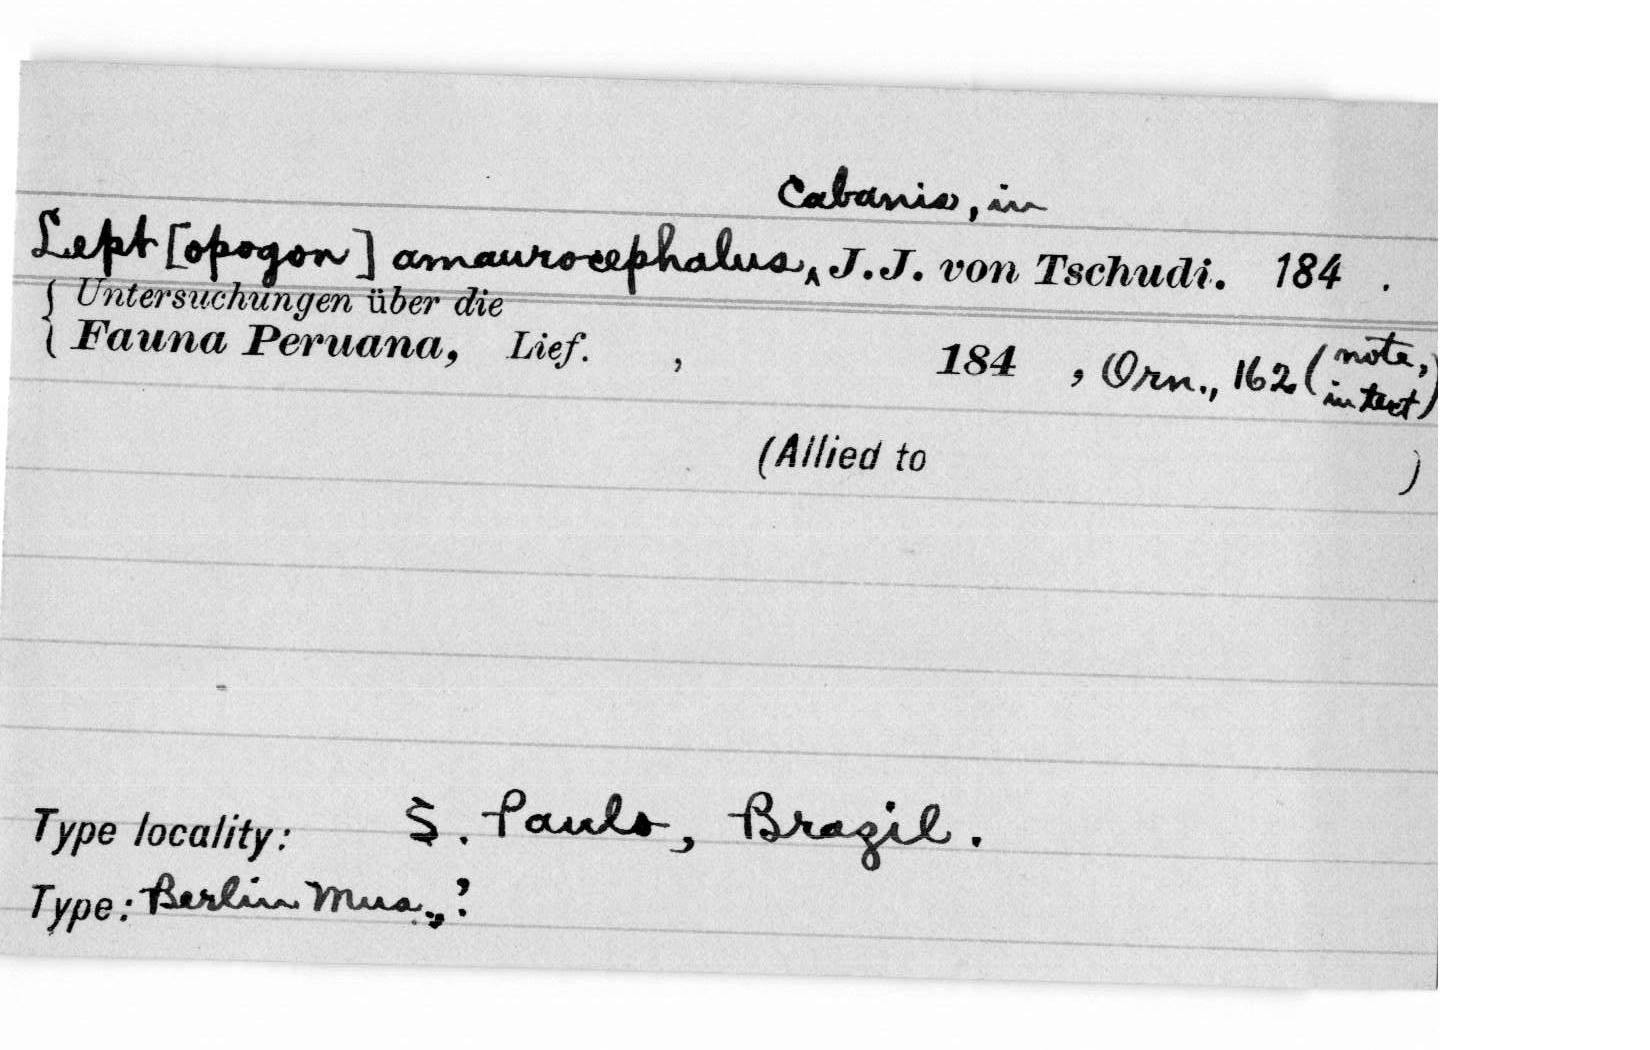 Cabanis, in
Lept[opogon] amaurocephalus, ^ J. J. von Tschudi. 184 .
{ Untersuchungen über die
Fauna Peruana, Lief. , 184 , Orn., 162 (note, in text)
(Allied to )
Type locality: S. Paulo, Brazil.
Type: Berlin Mus., ?